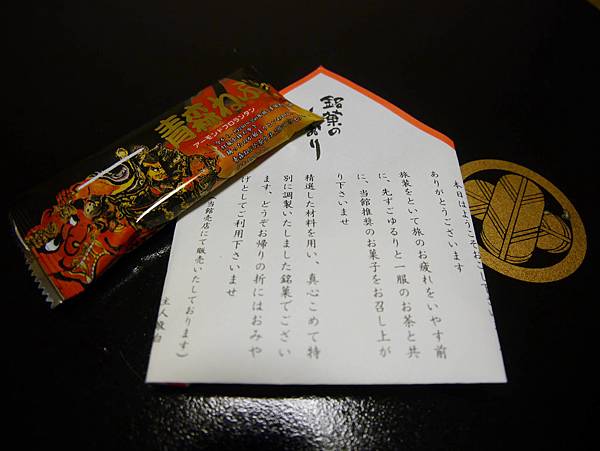 青森ねぶた
アーモンドフロランタン
銘菓の
しおり
本日はようこそおこし
ありがとうございます
旅装をといて旅のお疲れをいやす前
に、先ずごゆるりと一服のお茶と共
に、当館推奨のお菓子をお召し上が
り下さいませ
精選した材料を用い、真心こめて特
別に調製いたしました銘菓でござい
ます、どうぞお帰りの折にはおみや
げとしてご利用下さいませ
当館売店にて販売いたしております）
主人敬白